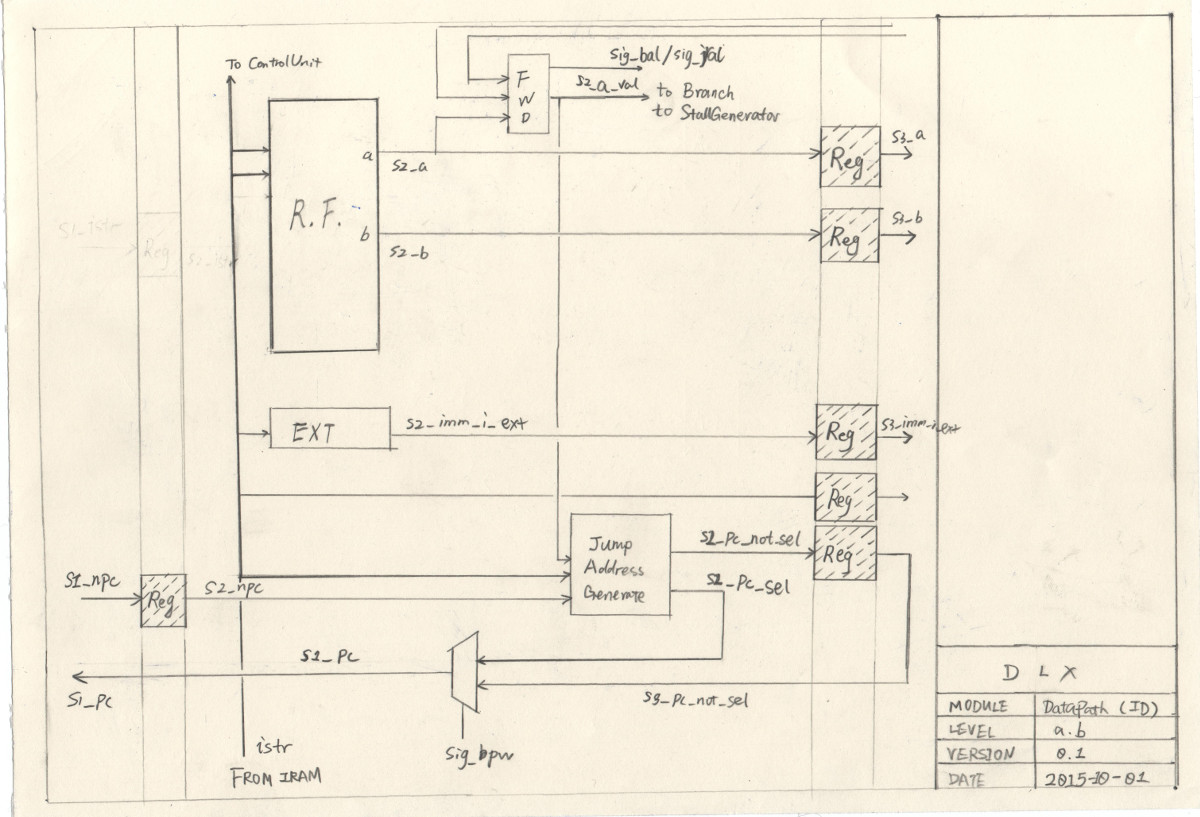 To ControlUnit
sig_bal/sig_jral
F
W
D
s2_a_val
to Branch
to StallGenerator
a
s2_a
R.F.
b
s2_b
Reg
s3_a
Reg
s3_b
s1_istr
Reg
s2_istr
EXT
s2_imm_i_ext
Reg
s3_imm_i_ext
Reg
Jump
Address
Generate
s2_pc_not_sel
Reg
s2_pc_sel
s1_npc
Reg
s2_npc
s1_pc
s1_pc
s3_pc_not_sel
sig_bpw
istr
FROM IRAM
DLX
MODULE DataPath (ID)
LEVEL a.b
VERSION 0.1
DATE 2015-10-01